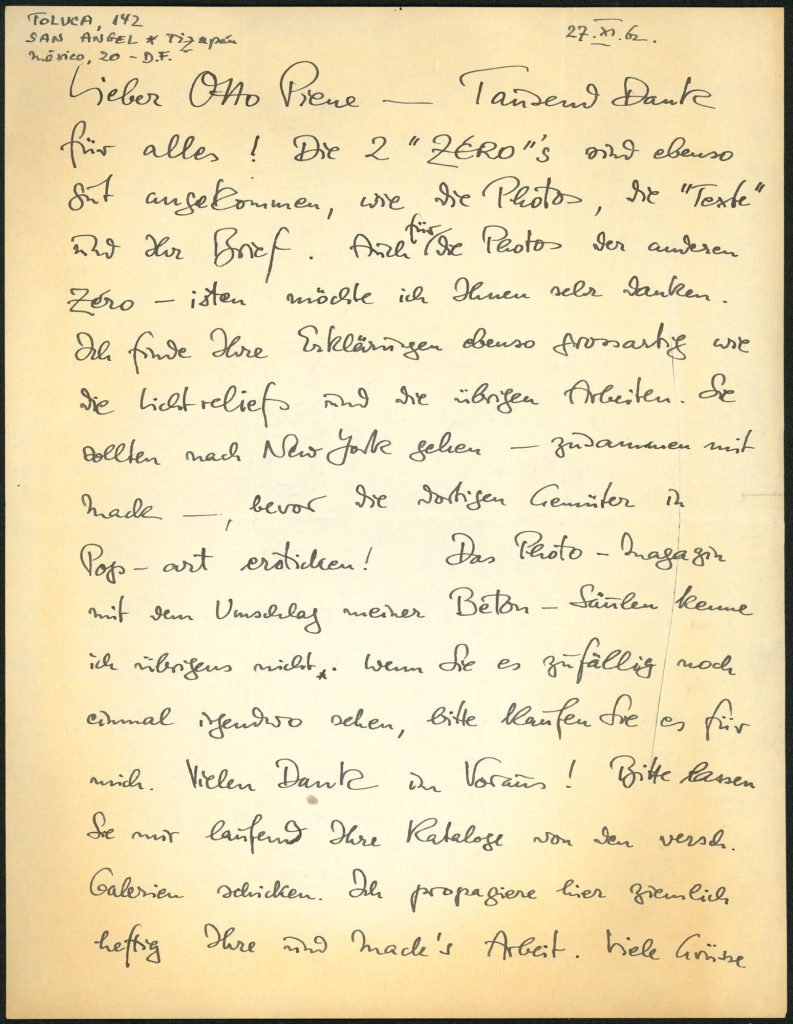 TOLUCA, 142
SAN ANGEL * Tizapán
México, 20 - D.F.
27. XI. 62.
Lieber Otto Piene — Tausend Dank
für alles ! Die 2 "ZERO"'s sind ebenso
gut angekommen, wie die Photos, die "Texte"
und Ihr Brief. Auch für die Photos der anderen
Zéro - isten möchte ich Ihnen sehr danken.
Ich finde Ihre Erklärungen ebenso grossartig wie
die Lichtreliefs und die übrigen Arbeiten. Sie
sollten nach New York gehen — zusammen mit
Mack —, bevor die dortigen Gemüter in
Pop-art ersticken! Das Photo-Magazin
mit dem Umschlag meiner Beton-Säulen kenne
ich übrigens nicht. Wenn Sie es zufällig noch
einmal irgendwo sehen, bitte kaufen Sie es für
mich. Vielen Dank im Voraus! Bitte lassen
Sie mir laufend Ihre Kataloge von den versch.
Galerien schicken. Ich propagiere hier ziemlich
heftig Ihre und Mack's Arbeit. Viele Grüsse